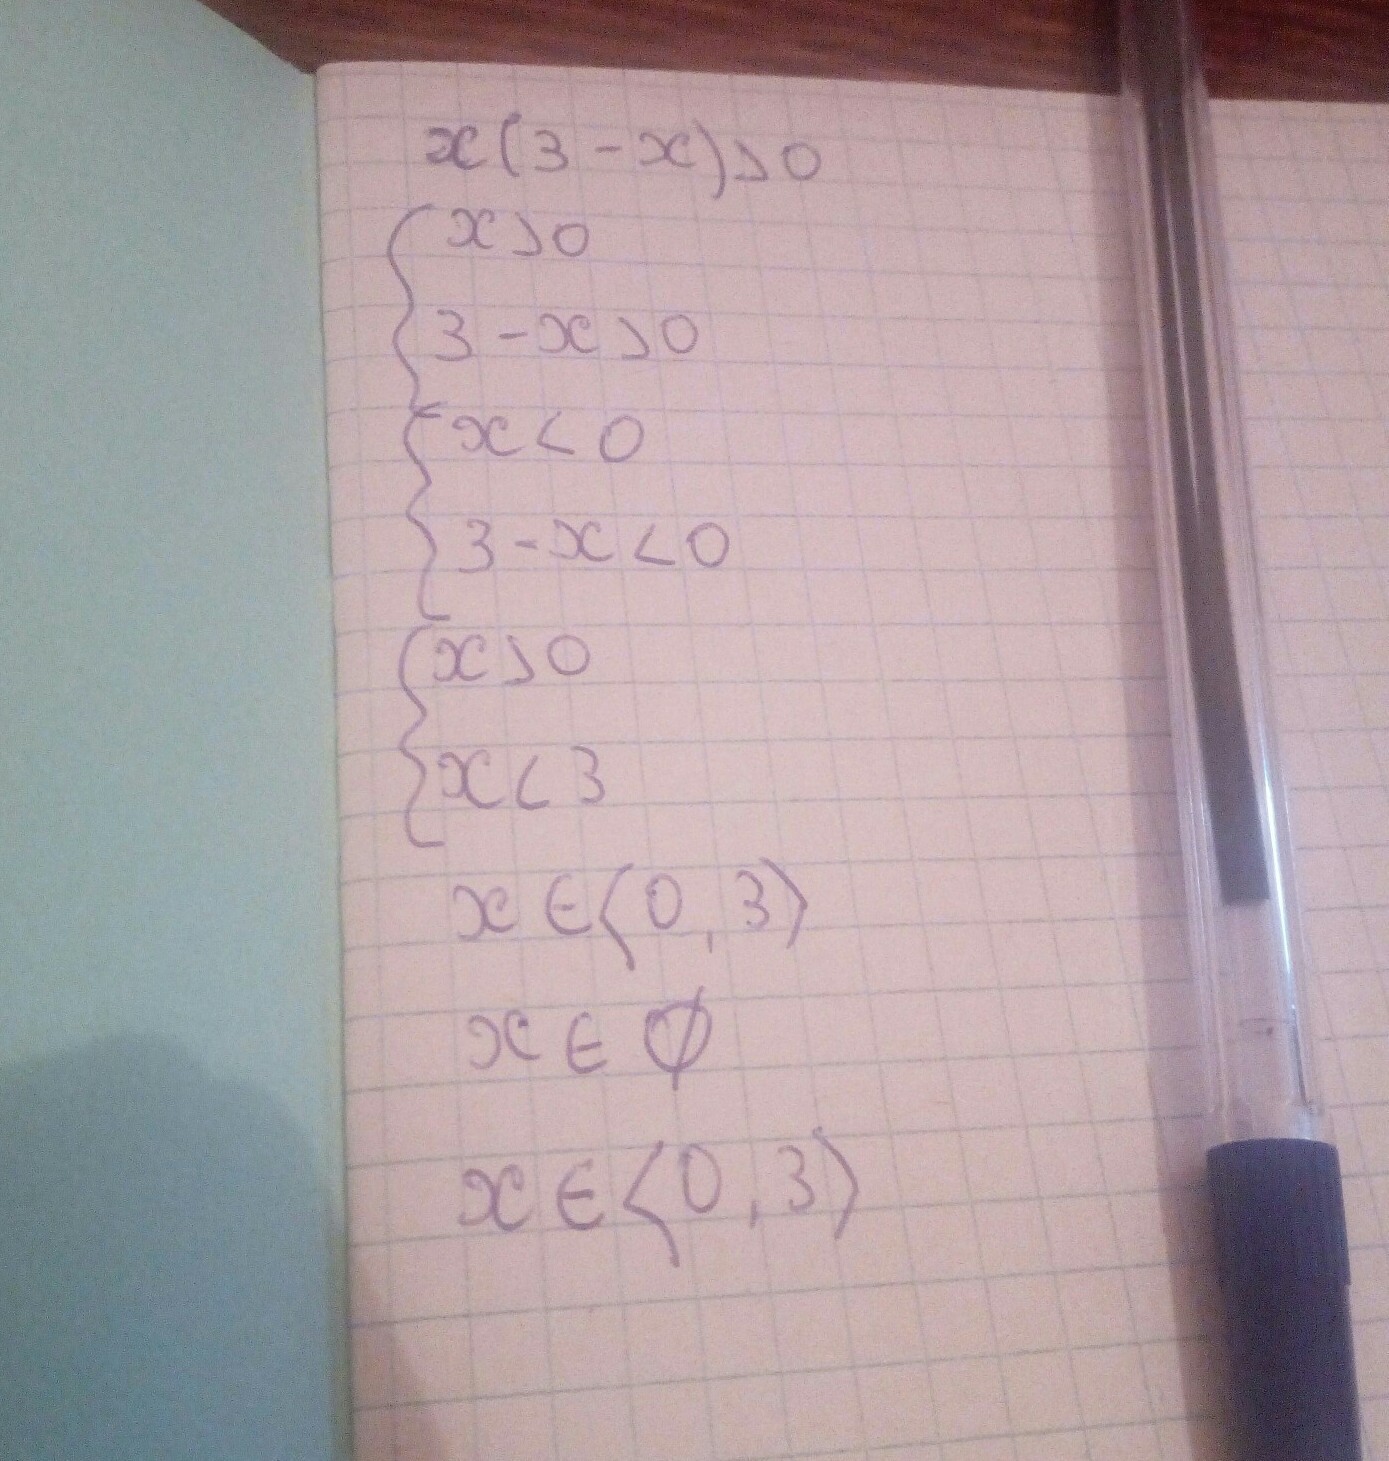 x(3-x)>0
x>0
3-x>0
x<0
3-x<0
x>0
x<3
x∈⟨0,3⟩
x∈∅
x∈⟨0,3⟩